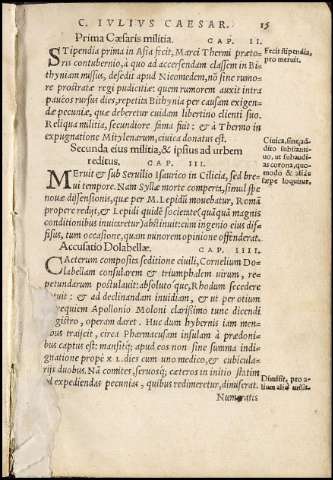 C. IVLIVS CAESAR. 15
Prima Cæsaris militia. CAP. II.
STipendia prima in Asia fecit, Marci Thermi præto-
ris contubernio, à quo ad accersendam classem in Bi-
thyniam missus, desedit apud Nicomedem, nō sine rumo-
re prostratæ regi pudicitiæ: quem rumorem auxit intra
paucos rursus dies, repetita Bithynia per causam exigen-
dæ pecuniæ, quæ deberetur cuidam libertino clienti suo.
Reliqua militia, secundiore fama fuit: & à Thermo in
expugnatione Mitylenarum, ciuica donatus est.
Secunda eius militia, & ipsius ad urbem
reditus. CAP. III.
MEruit & sub Seruilio Isaurico in Cilicia, sed bre-
ui tempore. Nam Syllæ morte comperta, simul spe
nouæ dissensionis, quæ per M. Lepidū mouebatur, Romā
propere redijt, & Lepidi quidē societate (quāquā magnis
conditionibus inuitaretur) abstinuit: cum ingenio eius dif-
fisus, tum occasione, quam minorem opinione offenderat.
Accusatio Dolabellæ. CAP. IIII.
CAEterum composita seditione ciuili, Cornelium Do-
labellam consularem & triumphalem uirum, re-
petundarum postulauit: absolutoq́ue, Rhodum secedere
tuit: & ad declinandam inuidiam, & ut per otium
requiem Apollonio Moloni clarissimo tunc dicendi
gistro, operam daret. Huc dum hybernis iam men-
bus traijcit, circa Pharmacusam insulam à prædoni-
bus captus est: mansitq́; apud eos non sine summa indi-
gnatione propè XL. dies cum uno medico, & cubicula-
rijs duobus. Nā comites, seruosq́; cæteros in initio statim
ad expediendas pecunias, quibus redimeretur, dimiserat.
Numeratis
Fecit stipendia,
pro meruit.
Ciuica, sine ad-
dito substanti-
uo, ut subaudi-
as corona, quo-
modo & alias
sæpe loquitur.
Dimisit, pro a-
lium aliò misit.